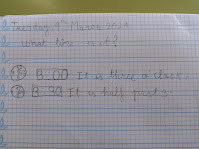 Tuesday 9th March 2021
What time is it?
① 3:00 It is three o'clock
② 3:30 It is half past 3.